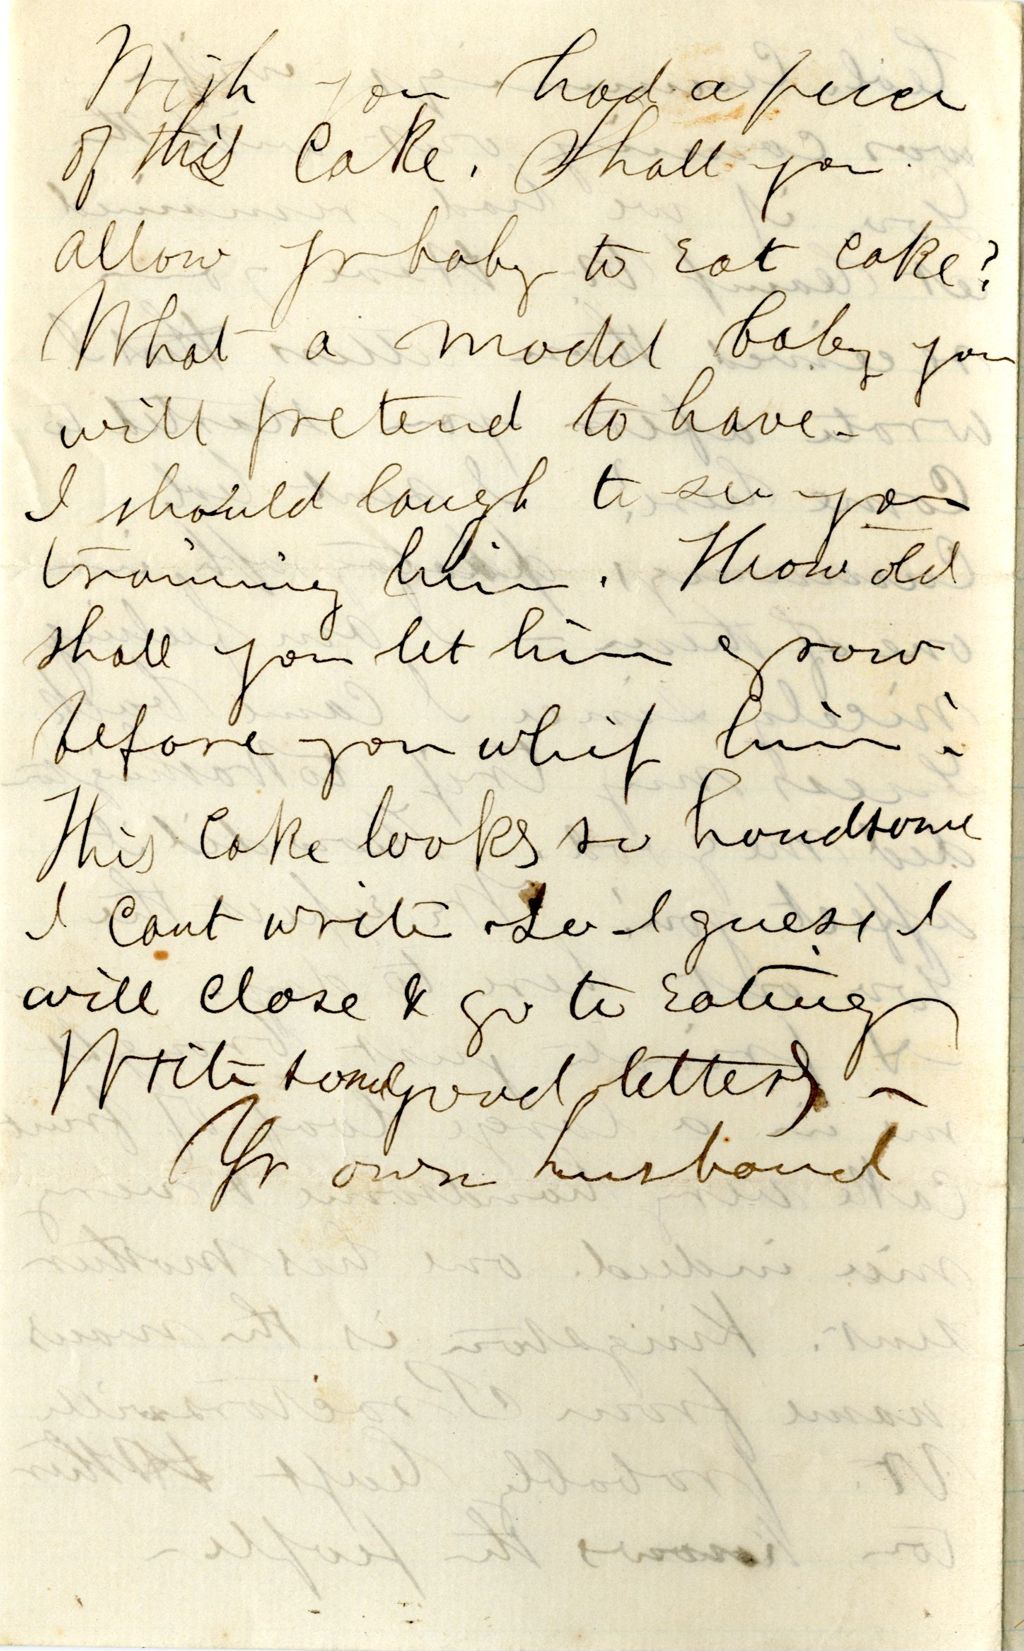 Wish you had a piece
of this Cake. Shall you
allow yr baby to Eat Cake?
What a model baby you
will pretend to have -
I should laugh to see you
training him. How old
shall you let him grow
before you whip him -
This Cake looks so handsome
I Cant write so I guess I
will Close & go to Eating
Write some good letters -
Yr own husband